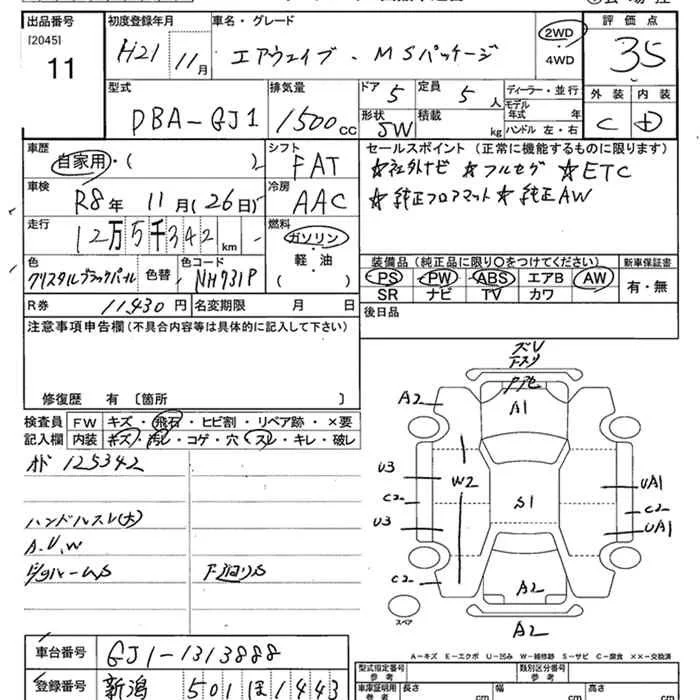 出品番号 初度登録年月 車名・グレード 2WD 評価点
[2045] 11 H21 11月 エアウェイブ・MSパッケージ 4WD 3.5
型式 排気量 ドア 5 定員 5人 ディーラー・並行 外装 内装
DBA-GJ1 1500cc 形状 SW 積載 kg モデル年式 年 ハンドル 左・右 C D
車歴 シフト セールスポイント (正常に機能するものに限ります)
自家用・( ) FAT ☆社外ナビ ☆フルセグ ☆ETC
車検 冷房 ☆純正フロアマット ☆純正AW
R8年 11月(26日) AAC
走行 燃料
12万5千342km ガソリン
軽・油
( )
色 色替 色コード 装備品 (純正品に限り○をつけてください) 新車保証書
クリスタルブラックパール NH731P PS PW ABS エアB AW 有・無
SR ナビ TV カワ
R券 11430円 名変期限 月 日 後日品
注意事項申告欄(不具合内容等は具体的に記入して下さい)
修復歴 有 〔箇所 〕
検査員 FW キズ・飛石・ヒビ割・リペア跡・×要
記入欄 内装 キズ・汚レ・コゲ・穴・スレ・キレ・破レ
オド 125342
ハンドルスレ(大)
A.U.W
下廻りS
A2 A1
U3 W2 UA1
C2 S1 C2
U3 UA1
C2 A2
スペア A2
A-キズ E-エクボ U-凹み W-補修跡 S-サビ C-腐食 ××-交換済
車台番号 GJ1-1313888 型式指定番号 参考 類別区分番号 参考
登録番号 新潟 501 ほ 1443 車庫証明用 参考 長さ cm 幅 cm 高さ cm